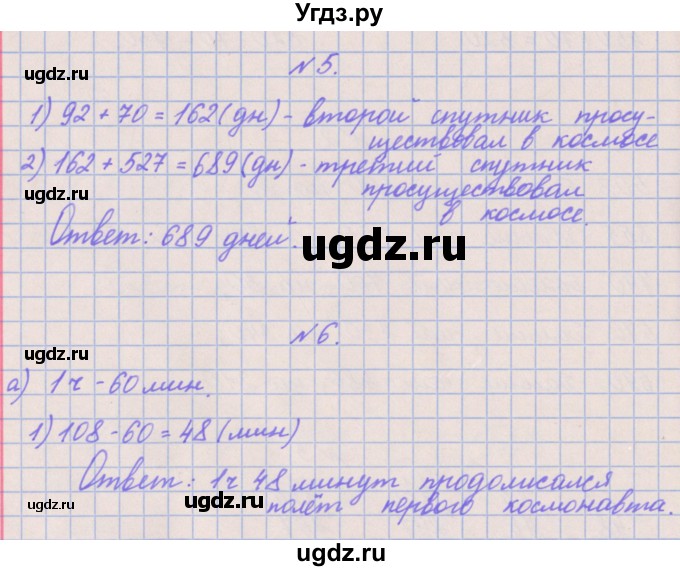 Угдз.ру
ugdz.ru ugdz.ru
№5.
1) 92 + 70 = 162 (дн) - второй спутник просу-
ществовал в космосе
ugdz.ru
2) 162 + 527 = 689 (дн) - третий спутник
просуществовал
в космосе.
ugdz.ru
Ответ: 689 дней.
ugdz.ru
№6.
ugdz.ru
а) 1 ч - 60 мин.
ugdz.ru
1) 108 - 60 = 48 (мин)
Ответ: 1ч 48 минут продолжался
ugdz.ru
полёт первого космонавта.
ugdz.ru